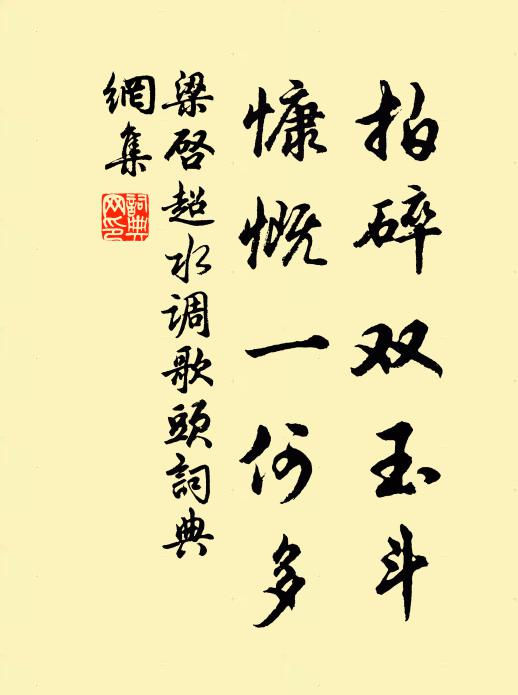 拍碎双玉斗
慷慨一何多
梁启超水调歌頭詞典
網集
詞典
网印